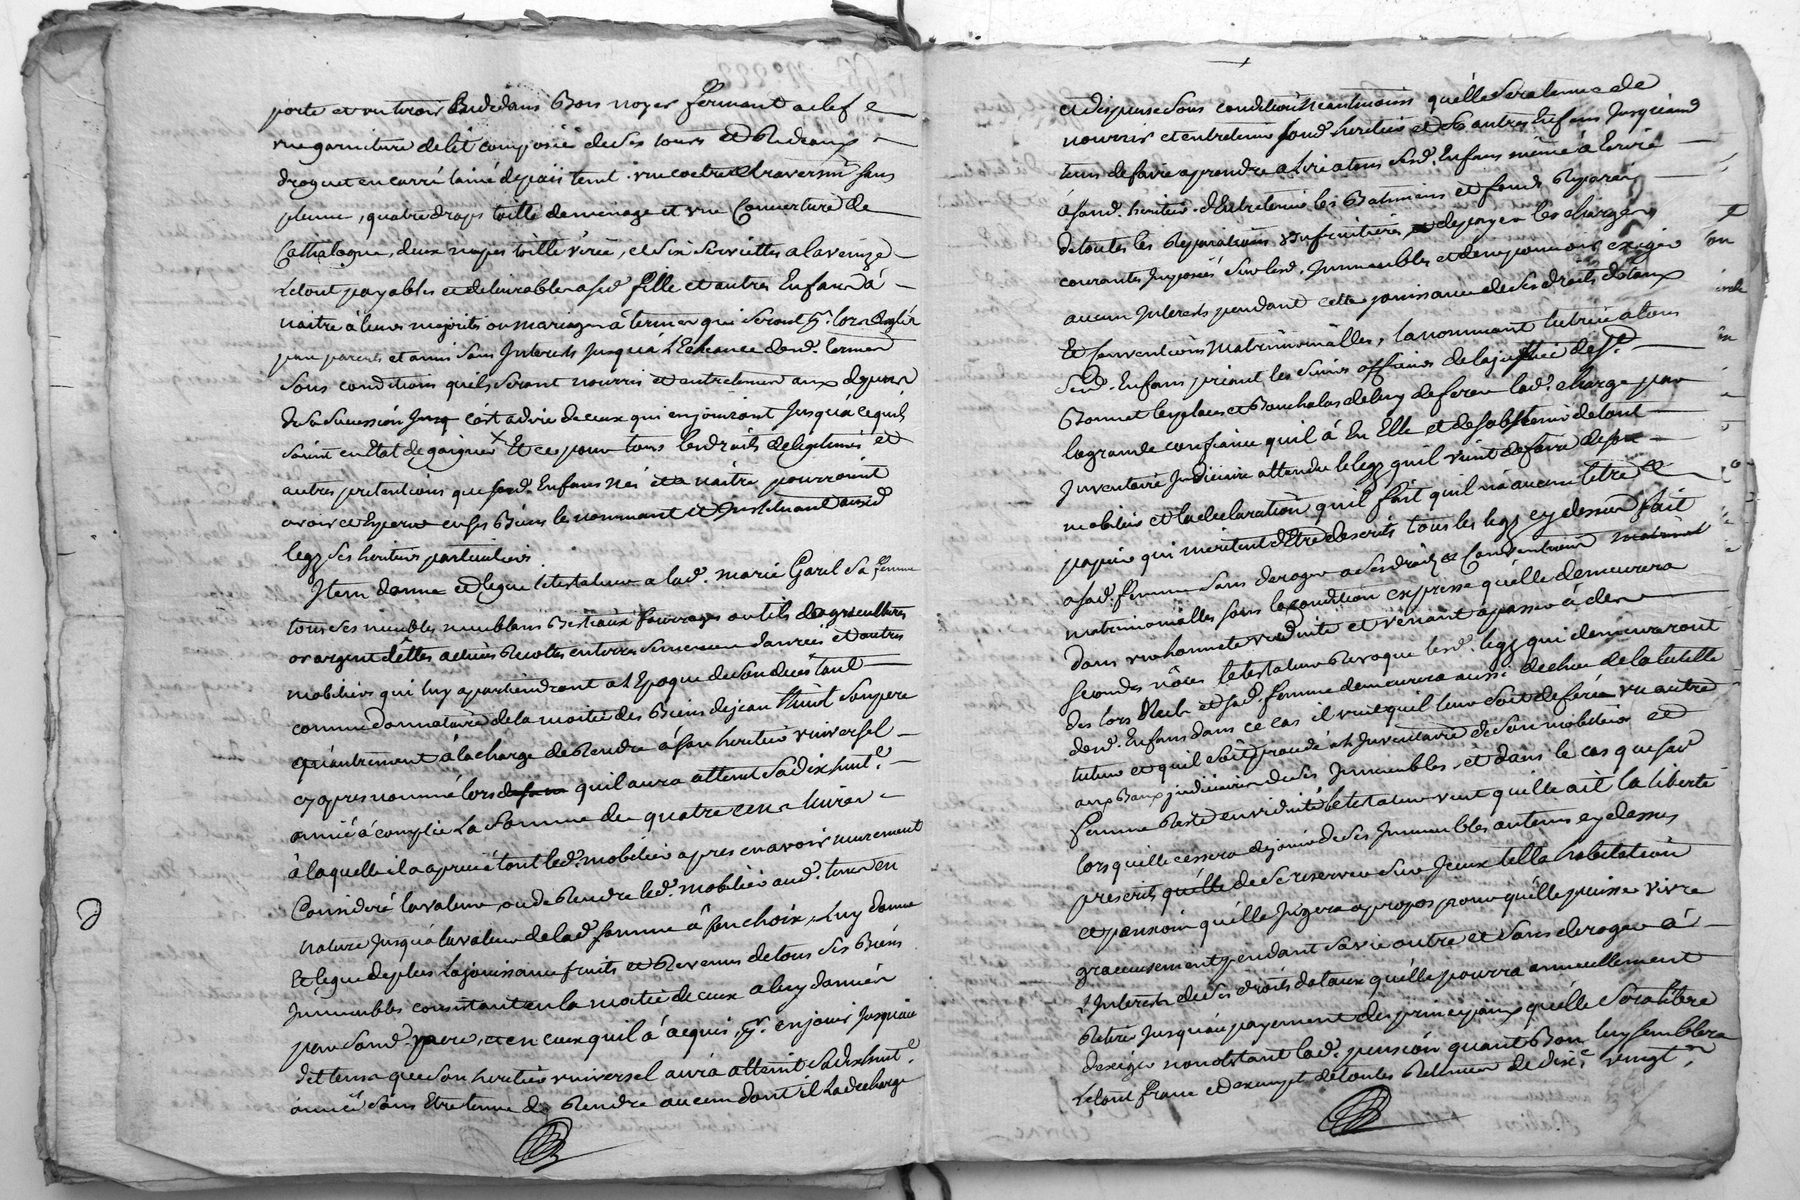 porte et un tiroir Budedans Bois noyer fermant a clef
vne garniture de lit composée de ses tours et Rideaux
droguet en carré laine depaiis teint vne coetre et traversin sans
plume, quatre draps toille de menage et vne Couverture de
Cathalogne, deux napes toille virée, et six serviettes a la venize
Letout payables et delivrables a sad. fille et autres Enfans à
naitre à leurs majorités ou mariages à termes qui seront pr. lors Reglés
par parents et amis sans Interests Jusqua L'Echeance desd. termes
sous conditions quils seront nourris et entretenus aux depens
de sa succession Jusq c'est a dire de ceux qui en jouiront Jusqu'a ce quils
soint en Etat de gaigner Et ce pour tous les droits de legitimes et
autres pretentions que sesd. Enfans Nés et a naitre pourroint
avoir et Esperer en ses Biens les nommant et Instituant auxd
legz ses heritiers particuliers
Item donne et legue le testateur a lad. marie Garel sa femme
tous ses meubles meublans Bestiaux fourrages outils dagricultures
or argent dettes actives Recoltes en terres semences danrées et autres
mobiliers qui luy apartiendront a L'Epoque de son deces tant
comme donnataire de la moitié des Biens de jean son pere
qu'autrement à la charge de Rendre à son heritier vniversel
cy apres nommé lors quil aura atteint sa dixhuite.
année à complie La somme de quatre cens livres
à laquelle il a aprecié tout led. mobilier apres en avoir murement
Consideré la valeur, ou de Rendre led. mobilier aud. tems en
nature Jusqu'à la valeur de lad. somme à son choix, Luy donne
Et legue de plus La jouissance fruits et Revenus de tous ses Biens
Immeubles consistant en la moitié de ceux a luy donnés
par sond. pere, et en ceux quil à aquis, pr. en jouir Jusquau
dit tems que son heritier vniversel aura atteint sa dixhuite.
année sans Etre tenue d'en Rendre aucun dont il La decharge
et dispense sous condition neantmoins qu'elle sera tenue de
nourrir et entretenir sond. heritier et ses autres Enfans Jusquaud
tems de faire aprendre a Lire a tous sesd. Enfans meme à Ecrire
à sond. heritier. d'Entretenir les Batimens et fonds Reparés
de toutes les Reparations Vsufruitieres, de payer les charges
courantes Imposées sur lesd. Immeubles et de ne pouvoir exiger
aucun Interests pendant cette jouissance de ses droits dotaux
Et Conventions Matrimonialles, la nommant tutrice a tous
sesd. Enfans priant les sieurs officiers de la justice de St.
Bonnet leyplaces et Bouchalas de luy deferer lad. charge par
la grande confiance quil à En Elle et de sabstenir de tout
Inventaire Judiciaire attendu le legz quil vient de faire de son
mobilier et la declaration quil fait quil n'a aucun titre et
papier qui meritent d'Etre descrits tous les legz cy dessus fait
a sad. femme sans deroger a ses droits et Conventions
matrimonialles sous la condition expresse qu'elle demeurera
dans vne honnete viduité et venant a passer à de
secondes nôces le testateur Revoque lesd. legz qui demeureront
des lors Nuls et sad. femme demeurera aussi dechue de la tutelle
desd. Enfans dans ce cas il veut quil leur soit deferé vn autre
tuteur et quil soit procedé a L'Inventaire de son mobilier et
aux Baux judiciaires de ses Immeubles, et dans le cas que sad
femme Reste en viduité le testateur veut quelle ait la liberté
lorsquelle cessera de jouir de ses Immeubles au tems cy dessus
prescrits qu'elle de se reserver sur Iceux telle habitation
et pension qu'elle Jugera a propos pour qu'elle puisse vivre
gracieusement pendant sa vie outre et sans deroger à
L'Interests de ses droits dotaux qu'elle pourra annuellement
Retirer Jusqu'au payement des principaux qu'elle sera libre
dexiger nonobstant lad. pension quant Bon luy semblera
Letout franc et exempt de toutes Retenues de dixe. vingte.